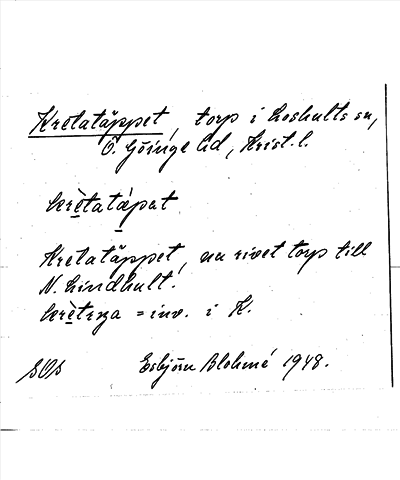 Kretatäppet, torp i Loshults sn,
Ö. Göinge hd, Krist. l.
krètatæpat
Kretatäppet, nu rivet torp till
N. Lindhult.
krètɩŋa = inv. i K.
SOS Esbjörn Blohmé 1948.